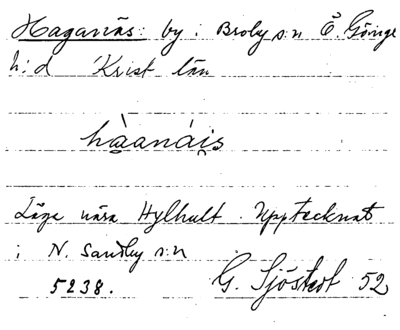 Haganäs: by i Broby s:n Ö. Göinge
h:d Krist län
hàanáis
Läge nära Hylhult. Upptecknat
i N. Sandby s:n
5238. G. Sjöstedt 52